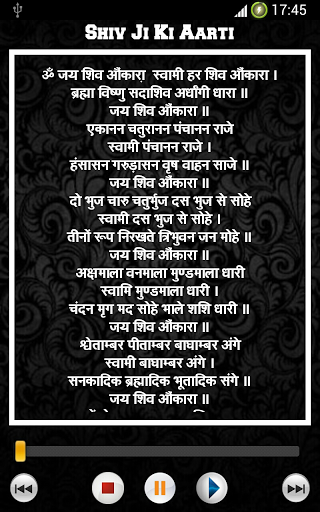 17:45
Shiv Ji Ki Aarti
ॐ जय शिव ओंकारा, स्वामी हर शिव ओंकारा ।
ब्रह्मा विष्णु सदाशिव अर्धांगी धारा ॥
जय शिव ओंकारा ॥
एकानन चतुरानन पंचानन राजे
स्वामी पंचानन राजे ।
हंसासन गरुड़ासन वृष वाहन साजे ॥
जय शिव ओंकारा ॥
दो भुज चारु चतुर्भुज दस भुज से सोहे
स्वामी दस भुज से सोहे ।
तीनों रूप निरखते त्रिभुवन जन मोहे ॥
जय शिव ओंकारा ॥
अक्षमाला वनमाला मुण्डमाला धारी
स्वामि मुण्डमाला धारी ।
चंदन मृग मद सोहे भाले शशि धारी ॥
जय शिव ओंकारा ॥
श्वेताम्बर पीताम्बर बाघाम्बर अंगे
स्वामी बाघाम्बर अंगे ।
सनकादिक ब्रह्मादिक भूतादिक संगे ॥
जय शिव ओंकारा ॥